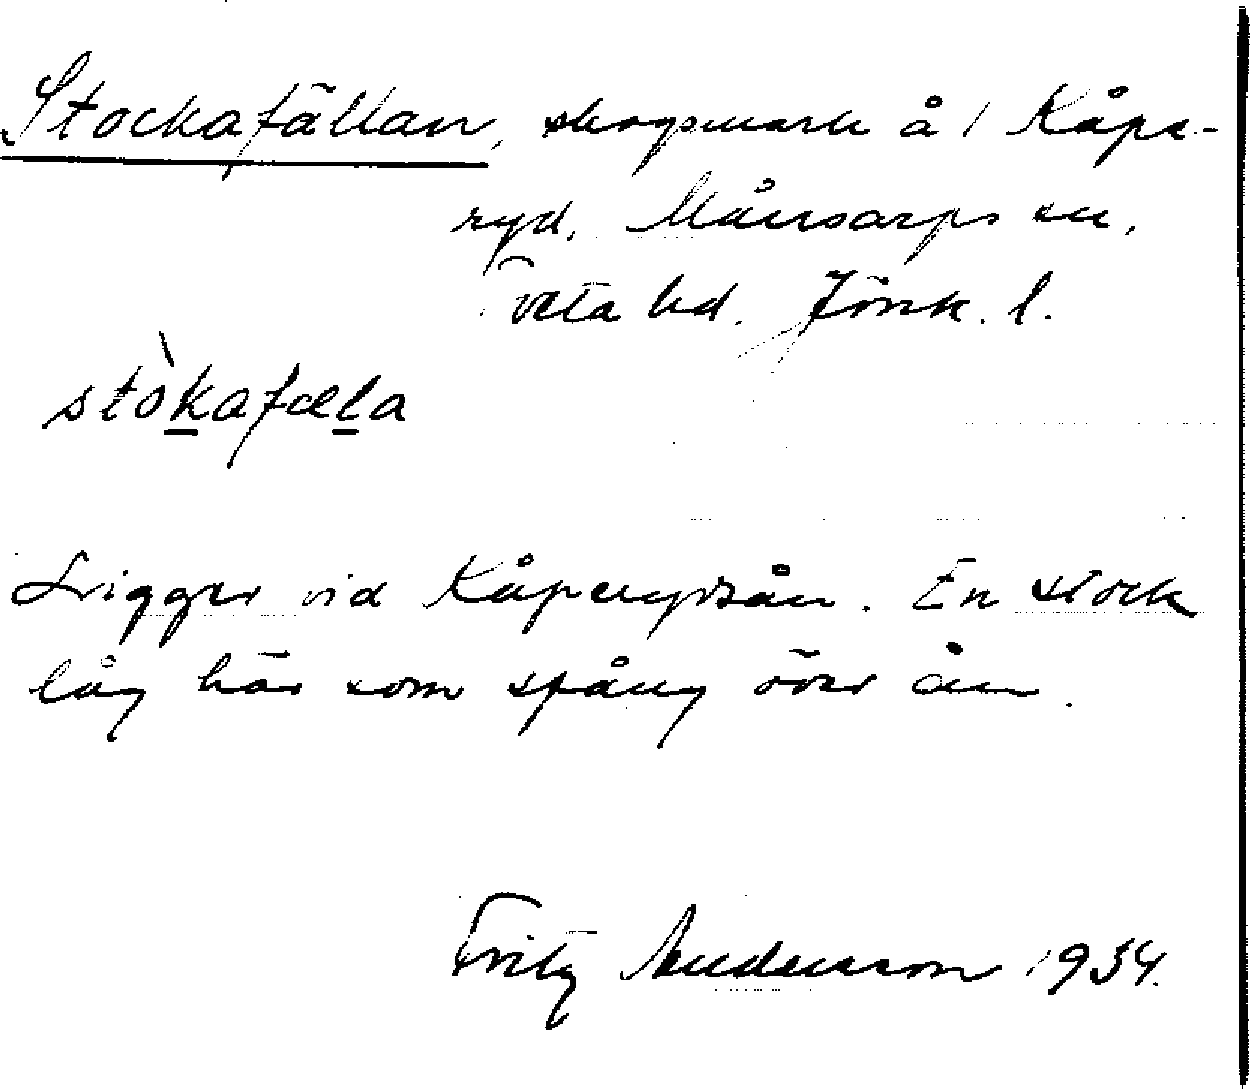 Stockafällan, skogsmark å 1 Kåpe-
ryd, Månsarps sn,
Tveta hd. Jönk. l.
stòkafæla
Ligger vid Kåperydsån. En stock
låg här som spång över ån.
Fritz Anderson 1934.